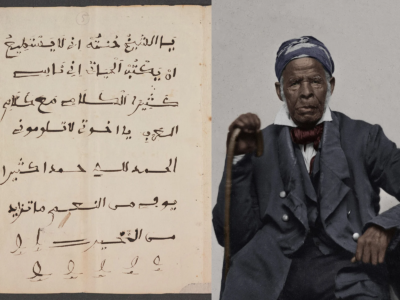 يا الشيخ خنتُه اني لا يستطيعُ
ان يكتبَ الحيات اني ناس
كثيرا الكلام مع كلام
العربي يا اخوتي لا تلوموني
الحمد لله حمدا كثيرا
يوف من النعيم ما تزيد
من الخير